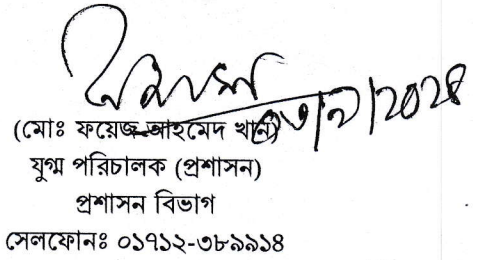 (মোঃ ফয়েজ আহমেদ খান)
যুগ্ম পরিচালক (প্রশাসন)
প্রশাসন বিভাগ
সেলফোনঃ ০১৭১২-৩৮৯৯১৪